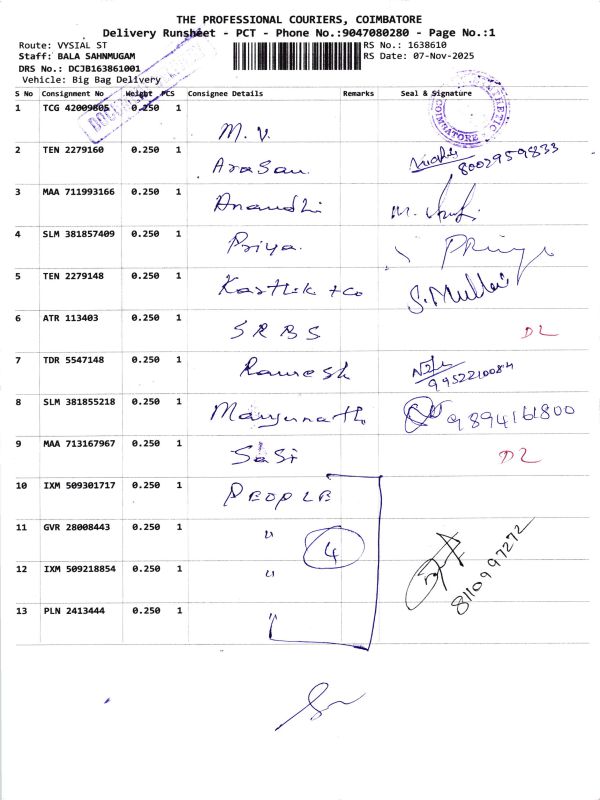 THE PROFESSIONAL COURIERS, COIMBATORE
Delivery Runsheet - PCT - Phone No.:9047080280 - Page No.:1
Route: VYSIAL ST
RS No.: 1638610
Staff: BALA SAHNMUGAM
RS Date: 07-Nov-2025
DRS No.: DCJB163861001
Vehicle: Big Bag Delivery
S No Consignment No Weight PCS Consignee Details Remarks Seal & Signature
1 TCG 42009805 0.250 1 M. V.
COIMBATORE
2 TEN 2279160 0.250 1 Arasan. 8002959833
3 MAA 711993166 0.250 1 Anandhi
4 SLM 381857409 0.250 1 Priya.
5 TEN 2279148 0.250 1 Karthik + Co S. Mullai
6 ATR 113403 0.250 1 SRBS D2
7 TDR 5547148 0.250 1 Ramesh 9952210084
8 SLM 381855218 0.250 1 Manjunath 9894161800
9 MAA 713167967 0.250 1 Sasi D2
10 IXM 509301717 0.250 1 PEOPLE
11 GVR 28008443 0.250 1 " 4
12 IXM 509218854 0.250 1 " 8110997272
13 PLN 2413444 0.250 1 "